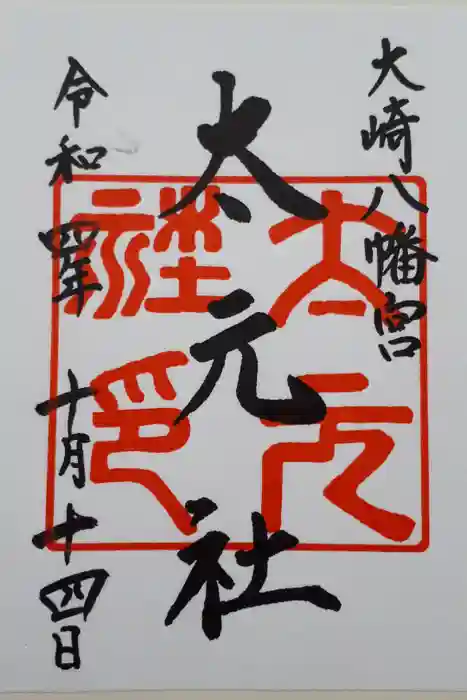 大崎八幡宮
太元社
令和四年十月十四日
太元社印